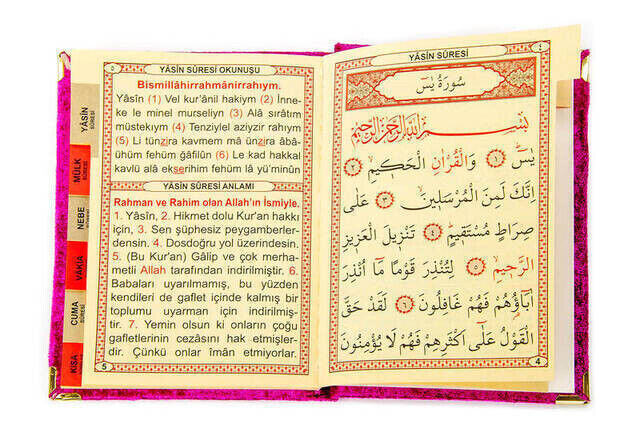 YÂSİN SÛRESİ
٤
سُورَةُ يٰسٓ
بِسْمِ اللّٰهِ الرَّحْمٰنِ الرَّحِيمِ
يٰسٓ ﴿١﴾ وَالْقُرْاٰنِ الْحَكِيمِ ﴿٢﴾
اِنَّكَ لَمِنَ الْمُرْسَلِينَ ﴿٣﴾ عَلٰى
صِرَاطٍ مُسْتَقِيمٍ ﴿٤﴾ تَنْزِيلَ الْعَزِيزِ
الرَّحِيمِ ﴿٥﴾ لِتُنْذِرَ قَوْمًا مَٓا اُنْذِرَ
اٰبَٓاؤُ۬هُمْ فَهُمْ غَافِلُونَ ﴿٦﴾ لَقَدْ حَقَّ
الْقَوْلُ عَلٰٓى اَكْثَرِهِمْ فَهُمْ لَا يُؤْمِنُونَ
4
٥
YÂSİN SÛRESİ OKUNUŞU
Bismillâhirrahmânirrahıym.
Yâsîn (1) Vel kur'ânil hakiym (2) İnne-
ke le minel murseliyn (3) Alâ sırâtım
müstekıym (4) Tenziylel aziyzir rahıym
(5) Li tünzira kavmem mâ ünzira âbâ-
ühüm fehüm ğâfilûn (6) Le kad hakkal
kavlü alâ ekserihim fehüm lâ yü'minûn
YÂSİN SÛRESİ ANLAMI
Rahman ve Rahim olan Allah'ın İsmiyle.
1. Yâsîn, 2. Hikmet dolu Kur'an hakkı
için, 3. Sen şüphesiz peygamberler-
densin. 4. Dosdoğru yol üzerindesin.
5. (Bu Kur'an) Gâlip ve çok merha-
metli Allah tarafından indirilmiştir. 6.
Babaları uyarılmamış, bu yüzden
kendileri de gaflet içinde kalmış bir
toplumu uyarman için indirilmiş-
tir. 7. Yemin olsun ki onların çoğu
gafletlerinin cezasını hak etmişler-
dir. Çünkü onlar îman etmiyorlar.
5
YÂSİN
SÛRESİ
MÜLK
SÛRESİ
NEBE
SÛRESİ
VAKIA
SÛRESİ
CUMA
SÛRESİ
KISA